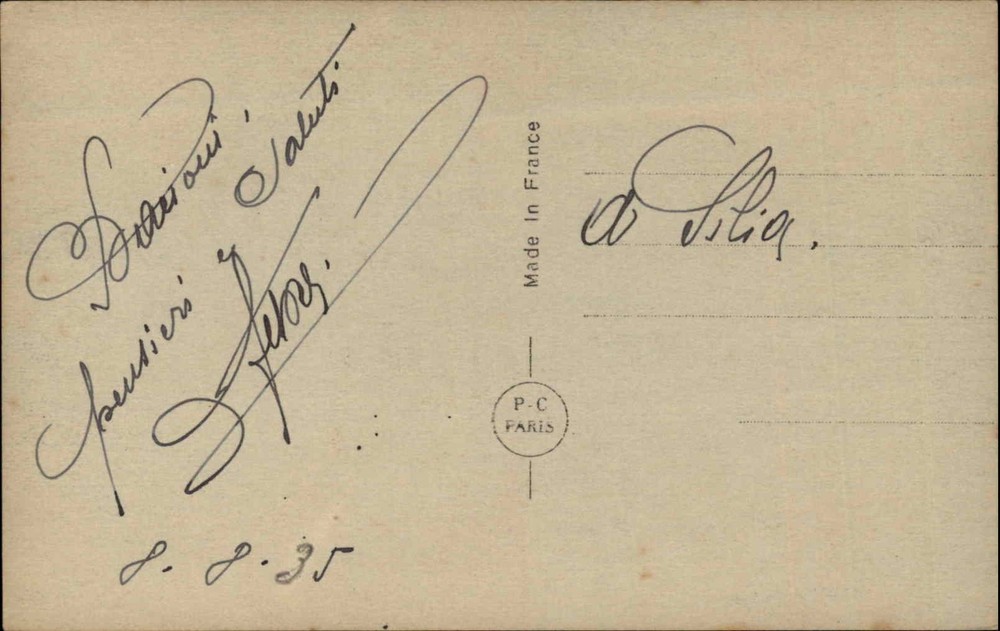 Saluti
pensieri
8. 8. 35
Made In France
P-C
PARIS
a Silia.